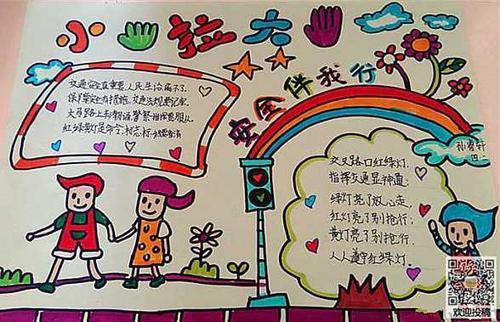 小拉大
安全伴我行
交通安全真重要,人民生活离不了.
保障安全有措施,交通法规要记牢.
大马路上警察指挥要服从
红绿黄灯是命令,
交叉路口红绿灯,
指挥交通显神通;
绿灯亮了放心走,
红灯亮了别抢行;
黄灯亮了别抢行,
人人遵守红绿灯.
欢迎投稿